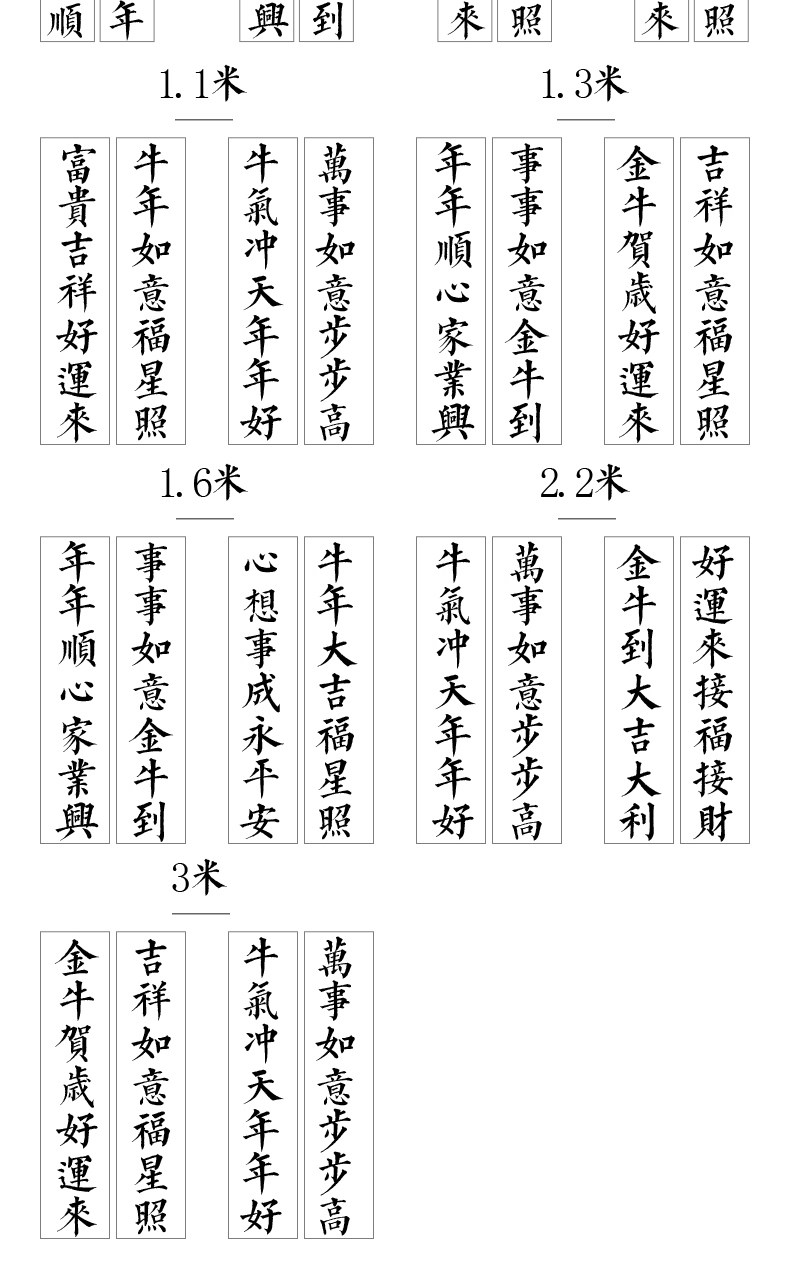 順 年 興 到 來 照 來 照
1.1米
富貴吉祥好運來
牛年如意福星照
牛氣冲天年年好
萬事如意步步高
1.3米
年年順心家業興
事事如意金牛到
金牛賀歲好運來
吉祥如意福星照
1.6米
年年順心家業興
事事如意金牛到
心想事成永平安
牛年大吉福星照
2.2米
牛氣冲天年年好
萬事如意步步高
金牛到大吉大利
好運來接福接財
3米
金牛賀歲好運來
吉祥如意福星照
牛氣冲天年年好
萬事如意步步高